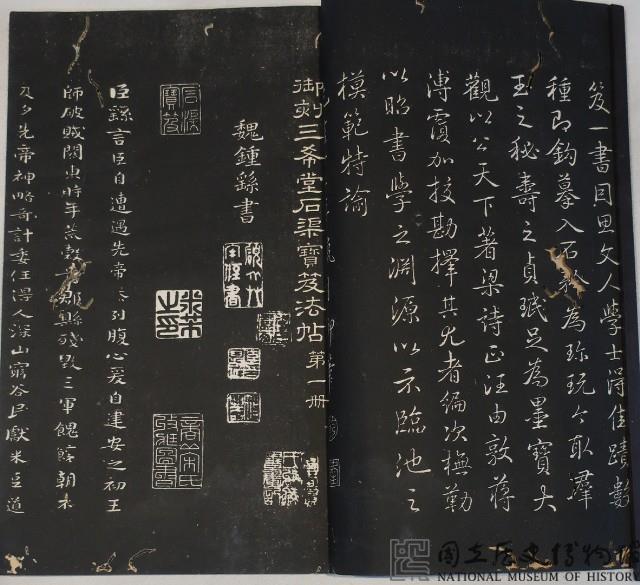 笈一書因思文人學士得佳蹟數
種即鈎摹入石矜為珍玩今取群
玉之秘壽之貞珉足為墨寶大
觀以公天下著梁詩正汪由敦蔣
溥實加挍勘擇其尤者編次橅勒
以昭書學之淵源以示臨池之
模範特諭
御刻三希堂石渠寶笈法帖第一册
魏鍾繇書
臣繇言臣自遭遇先帝忝列腹心爰自建安之初王
師破賊關東時年荒穀貴郡縣殘毀三軍餽饟朝不
及夕先帝神略奇計委任得人深山窮谷民獻米豆道
國立歷史博物館
NATIONAL MUSEUM OF HISTORY